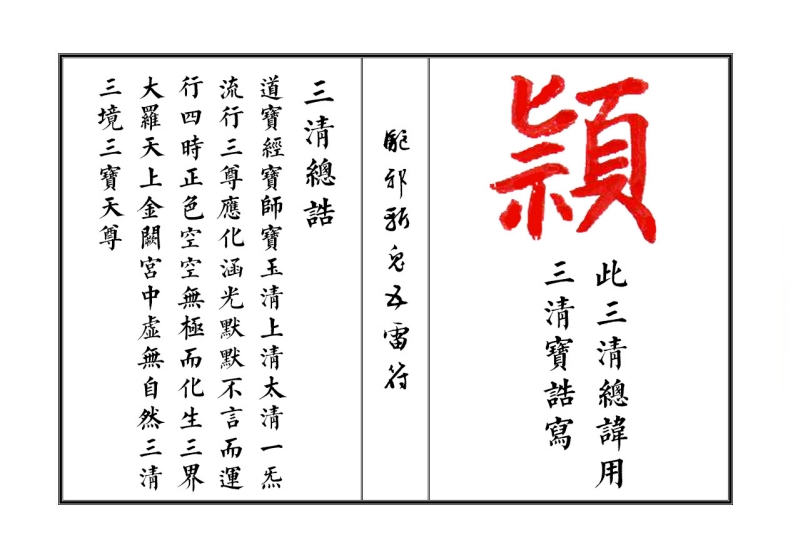 頴
此三清總諱用
三清寶誥寫
驅邪斬鬼五雷符
三清總誥
道寶經寶師寶玉清上清太清一炁
流行三尊應化涵光默默不言而運
行四時正色空空無極而化生三界
大羅天上金闕宮中虛無自然三清
三境三寶天尊